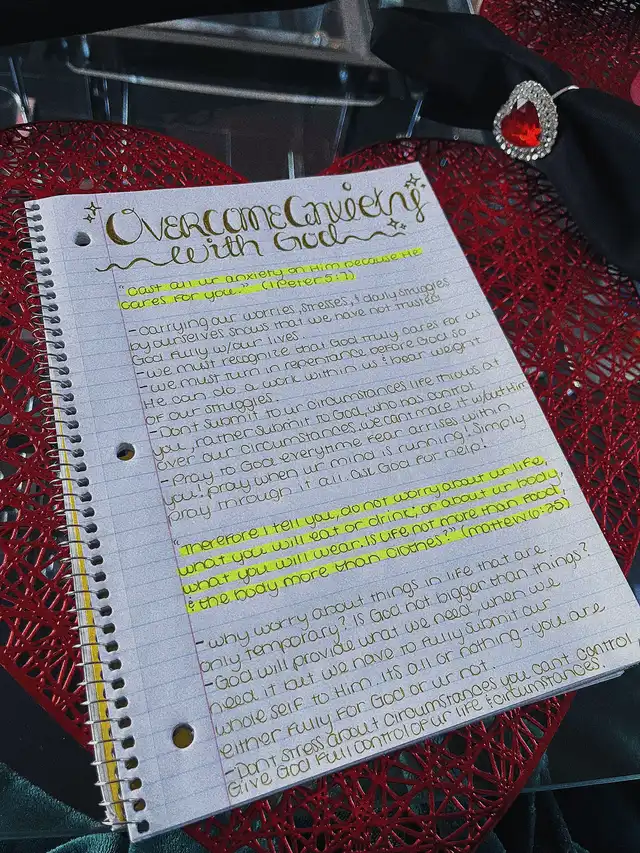 Overcome Anxiety
with God
"Cast all ur anxiety on Him because He
cares for you." (1 Peter 5:7)
- carrying our worries, stresses, & daily struggles
by ourselves shows that we have not trusted
God fully w/our lives.
- we must recognize that God truly cares for us
- we must turn in repentance before God so
He can do a work within us & bear weight
of our struggles.
- Dont submit to ur circumstances life throws at
you, rather submit to God, who has control
over our circumstances, we cant make it w/out Him
- Pray to God everytime fear arises within
you! pray when ur mind is running! Simply
pray through it all. ask God for help!
"Therefore I tell you, do not worry about ur life,
what you will eat or drink; or about ur body,
what you will wear. Is life not more than food,
& the body more than clothes?" (Matthew 6:25)
- why worry about things in life that are
only temporary? Is God not bigger than things?
- God will provide what we need, when we
need it but we have to fully submit our
whole self to Him. its all or nothing - you are
either fully for God or ur not.
- Dont stress about circumstances you cant control
Give God full control of ur life & circumstances!